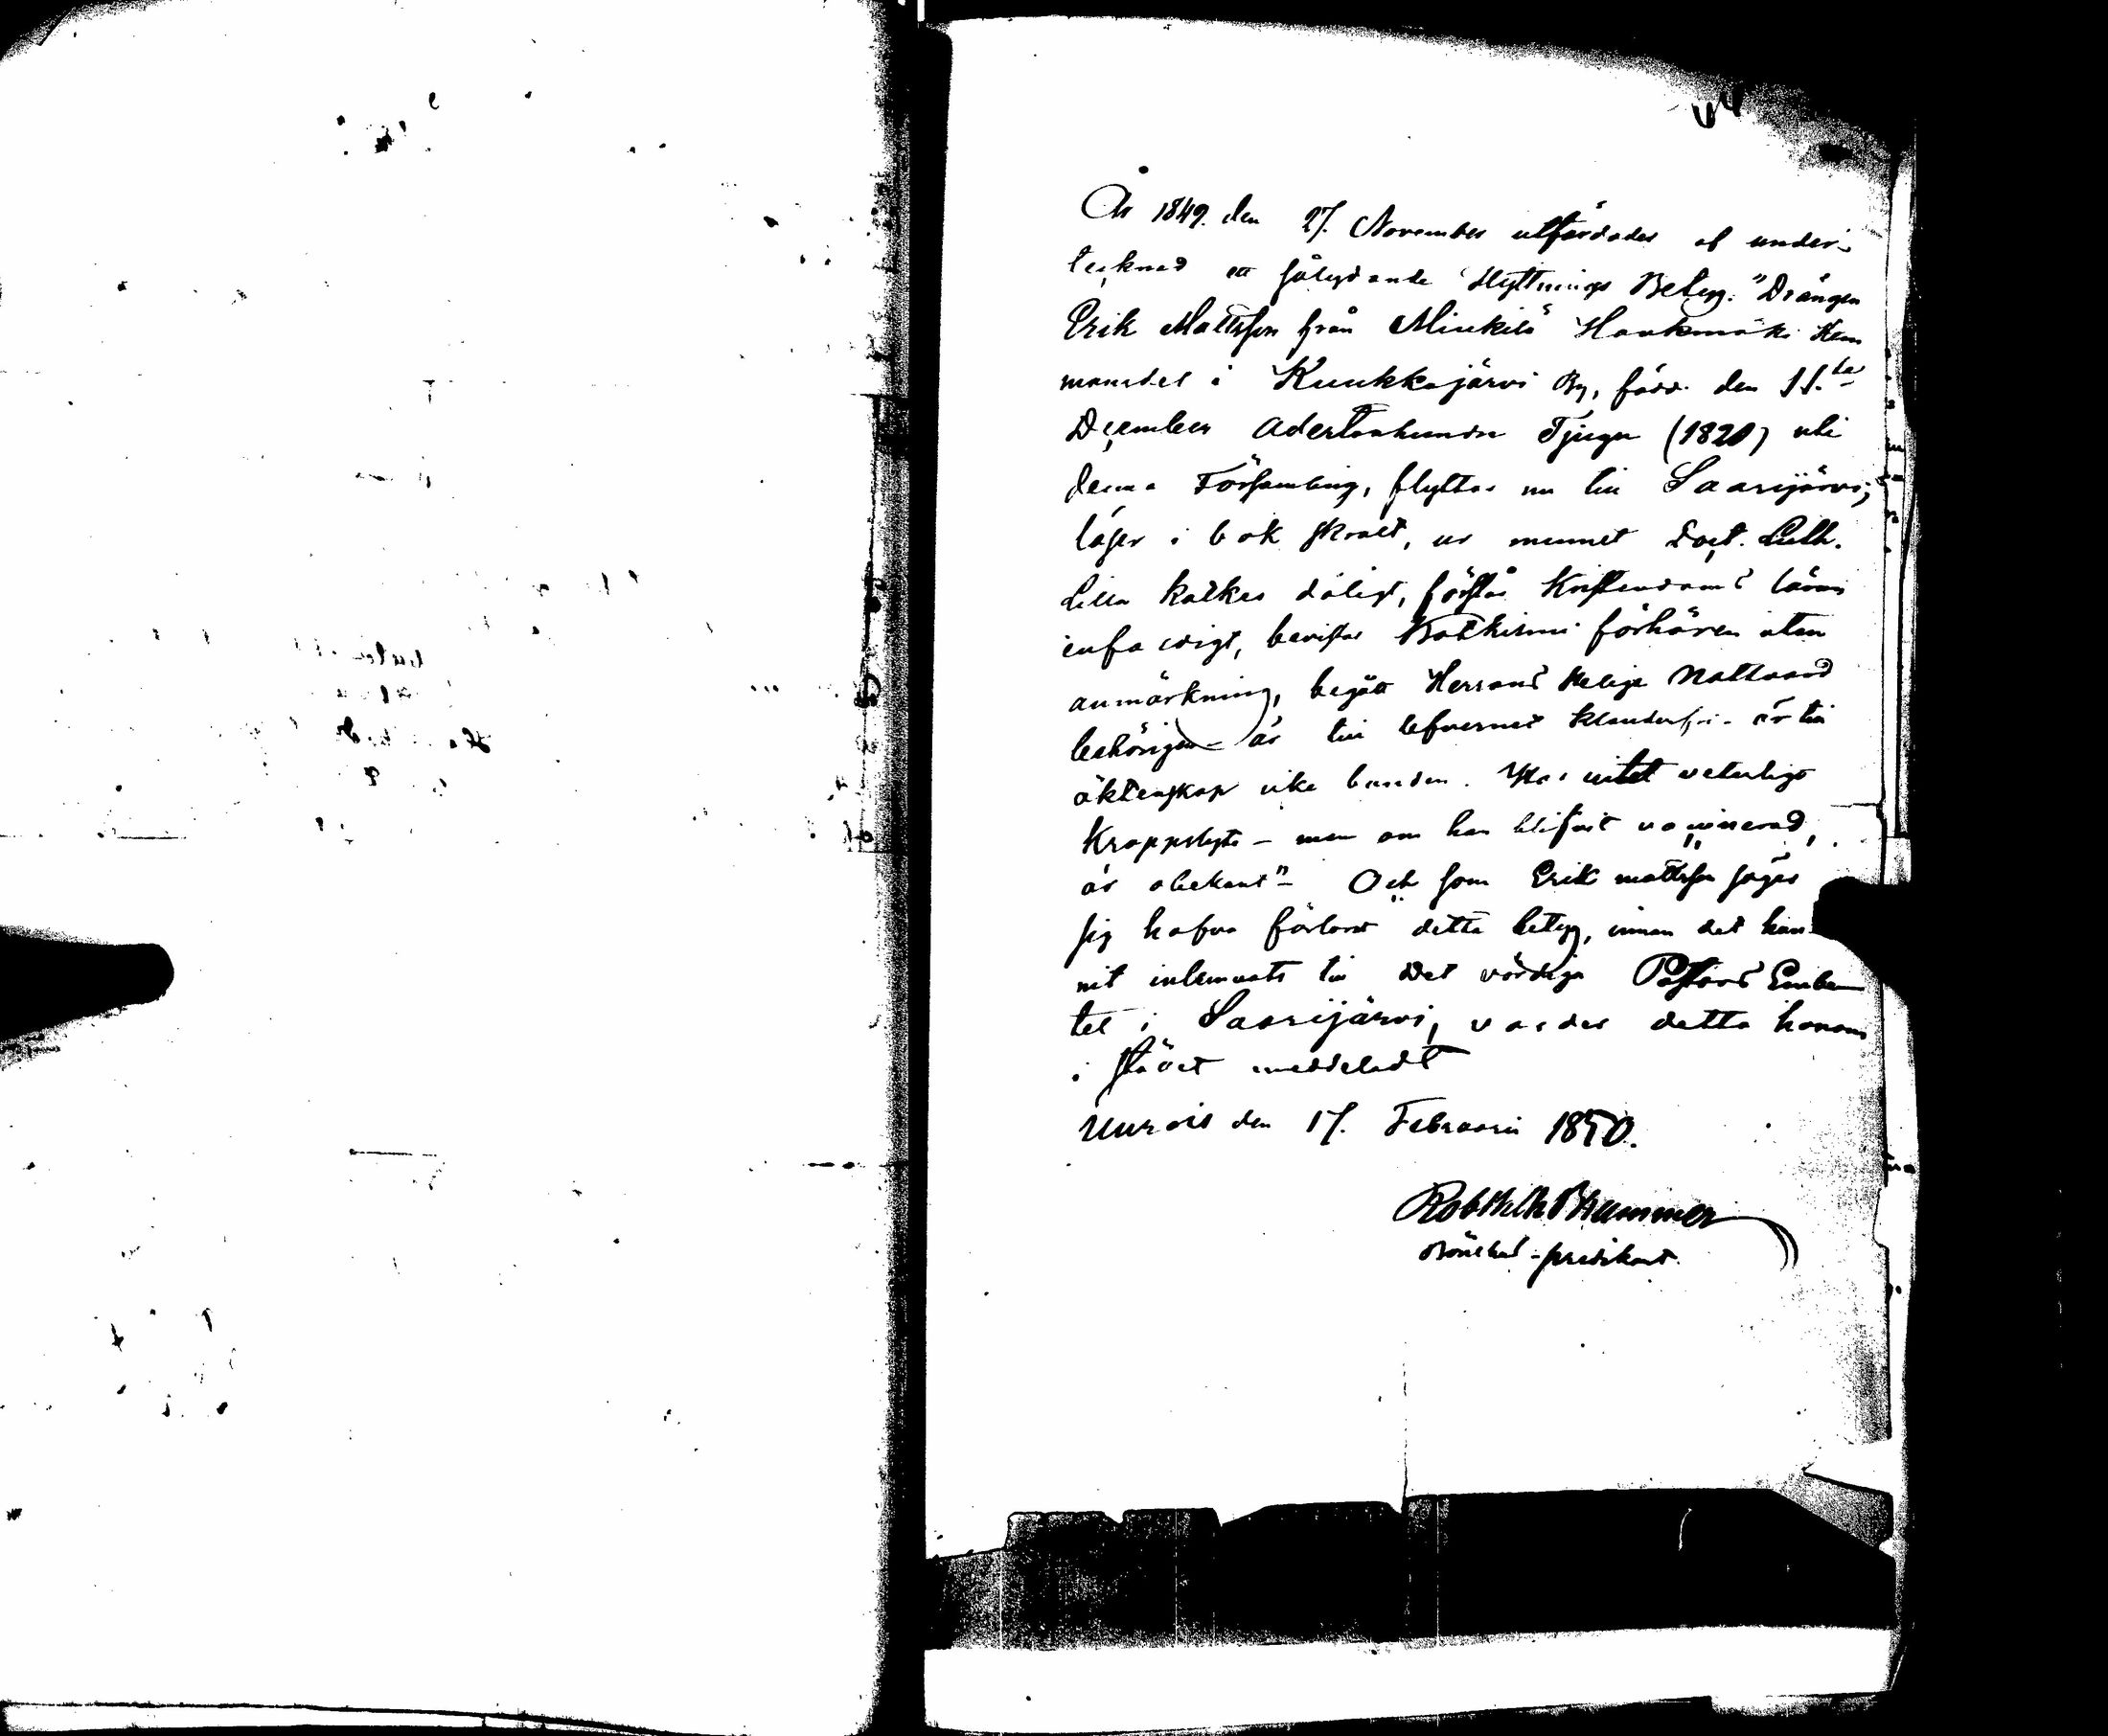 År 1849. den 27. November utfärdades af under-
tecknad ett sålydande Flyttnings Betyg. "Drängen
Erik Mattsson från Minkilä Haukmäki Hem
mandet i Kuukkajärvi By, född den 11.te
December Adertonhundra Tjugu (1820) uti
denna Församling, flyttar nu till Saarijärvi;
läser i bok skralt, ur minnet Doct. Luth.
Lilla katkes dåligt, förstår Kristendoms läran
enfaldigt, bevistar Katkismi förhören utan
anmärkning, begått Herrans Helige Nattvard
behörigen – är till lefvernet klanderfri – är till
äktenskap icke bunden. Har intet veterligt
Kroppslyte – men om han blifvit vaccinerad,
är obekant" – Och som Erik Mattsson säges
sig hafva förlorat detta betyg, innan det hun-
nit inlemnats till Det vördige Pastors Embe
tet i Saarijärvi, varder detta honom
i stället meddeladt
Uurais den 17. Februarii 1850.
Rob Wilh Brummer
Bönehus-predikant.